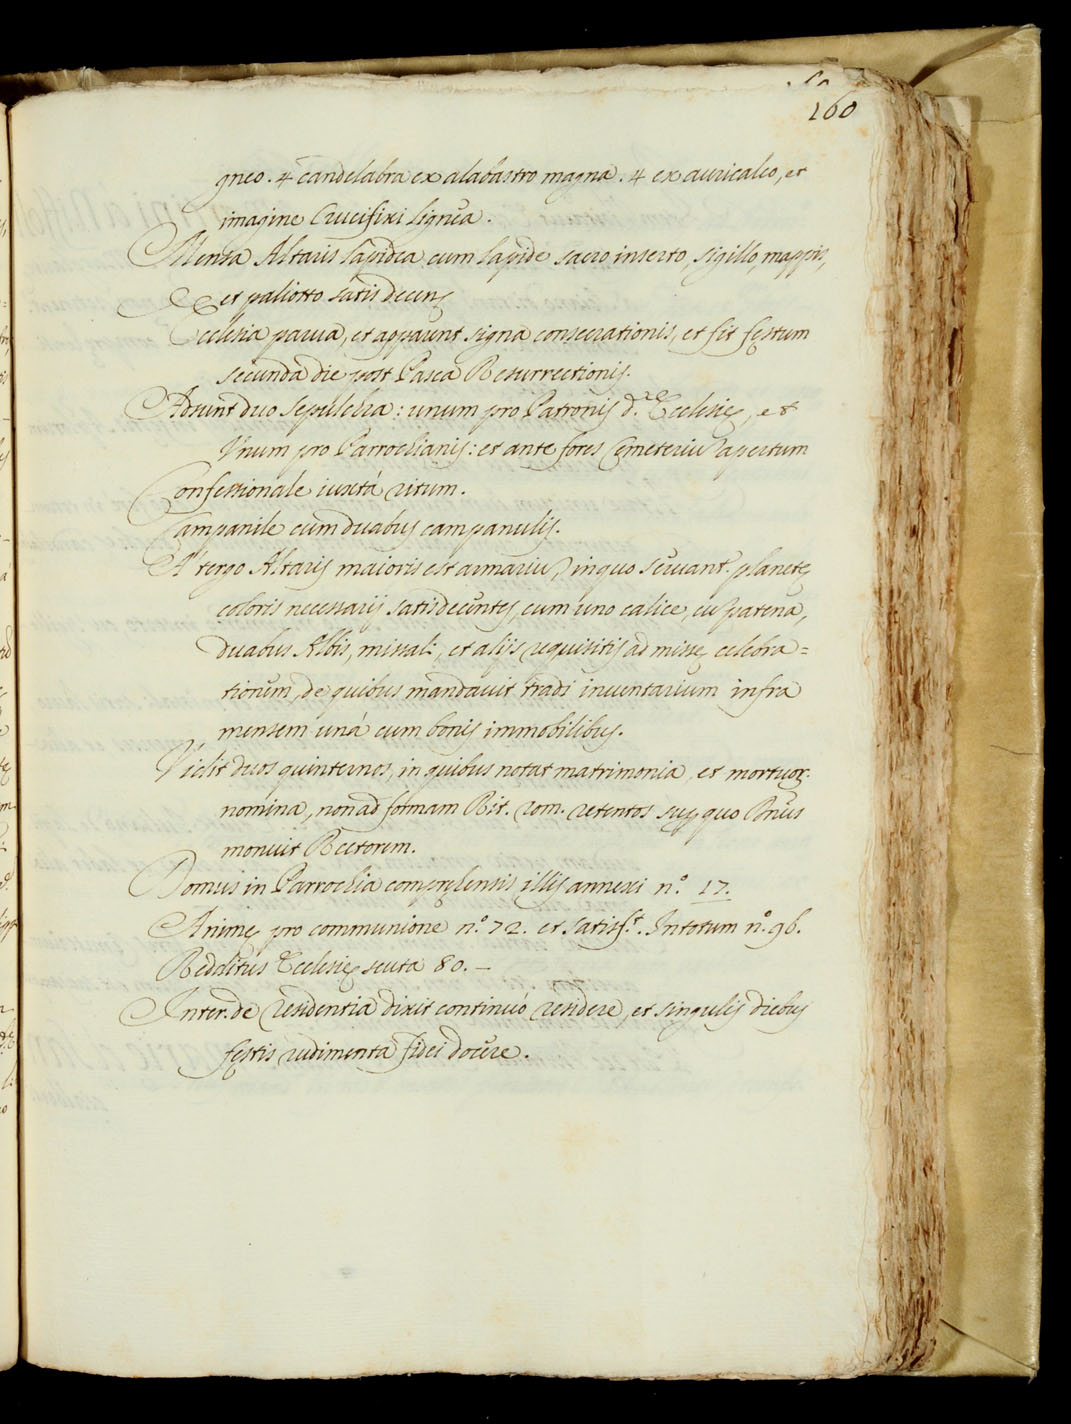 160
gneo. 4 candelabra ex alabastro magna. 4 ex auricalco, et
imagine Crucifixi lignea.
Mensa Altaris lapidea cum lapide sacro inserto, sigillo, mappis,
et paliotto satis decens
Ecclesia parua, et apparent signa consecrationis, et fit festum
secunda die post Pasca Resurrectionis.
Adsunt duo sepulchra: unum pro Patronis d.ę Ecclesię, et
Vnum pro Parrochianis: et ante fores Cęmeteriũ apertum
Confessionale iuxtà ritum.
Campanile cum duabus campanulis.
A tergo Altaris maioris est armariũ, in quo seruant. planetę
coloris necessarij satis decentes, cum uno calice, cũ patena,
duabus Albis, missali, et alijs requisitis ad missę celebra=
tionem, de quibus mandauit tradi inuentarium infra
mensem unà cum bonis immobilibus.
Vidit duos quinternos, in quibus notat matrimonia, et mortuor.
nomina, non ad formam Rit. rom. retentos super quo
monuit Rectorem.
Domus in Parrochia comprehensis illis annexi n.º 17.
Animę pro communione n.º 72. et satisf.t. In totum n.º 96.
Redditus Ecclesię scuta 80. —
Inter. de residentia dixit continuò residere, et singulis diebus
festis rudimenta fidei docere.